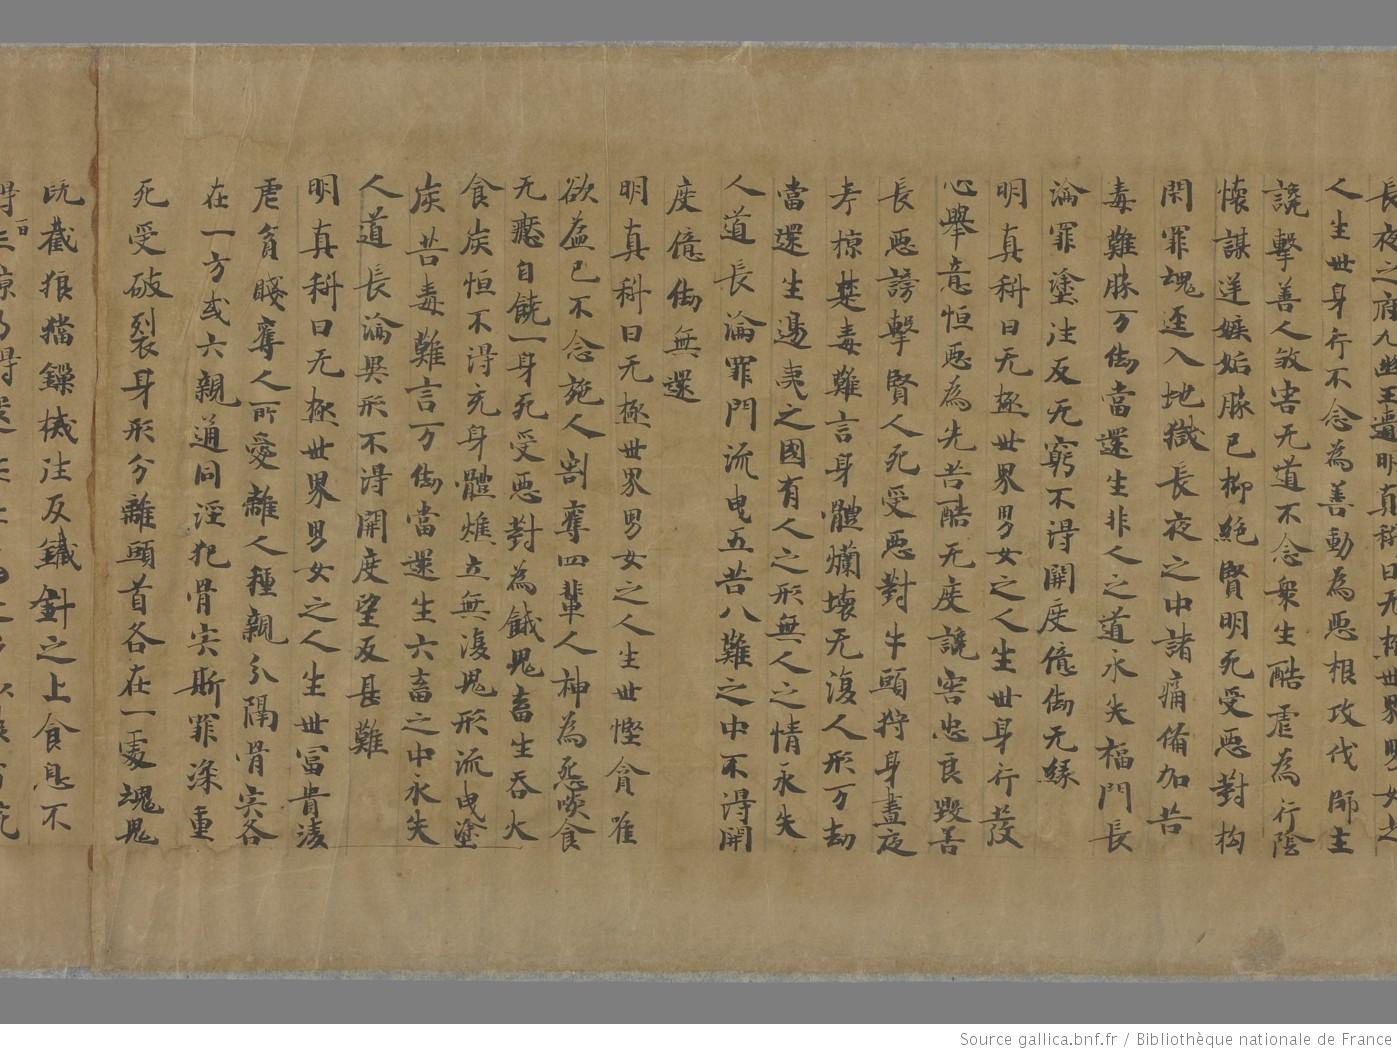 長夜之府九幽玉遺明真科曰无極世界男女之
人生世身行不念為善動為惡根攻伐師主
讒擊善人煞害无道不念衆生酷虐為行陰
懷謀逆嫉妬勝已抑絶賢明死受惡對构
閇罪魂逕入地獄長夜之中諸痛俻加苦
毒難勝万劫當還生非人之道永失福門長
淪罪塗注反无窮不淂開度億劫无緣
明真科曰无極世界男女之人生世身行發
心舉意恒惡為先苦酷无度讒害忠良毀善
長惡謗擊賢人死受惡對牛頭狩身晝夜
考椋楚毒難言身體爛壞无復人形万劫
當還生邊夷之國有人之形無人之情永失
人道長淪罪門流曳五苦八難之中不淂開
度億劫無還
明真科曰无極世界男女之人生世慳貪唯
欲益己不念施人割奪四輩人神為𢙣啖食
无㦗自饒一身死受惡對為餓鬼畜生吞火
食炭恒不淂充身體燋立無復鬼形流曳塗
炭苦毒難言万劫當還生六畜之中永失
人道長淪異形不淂開度望反甚難
明真科曰无極世界男女之人生世冨貴湊
虐貧賤奪人所愛離人種親分隔骨宍各
在一方或六親通同淫犯骨宍斯罪深重
死受破裂身形分離頭首各在一處魂鬼
既截狼犳鏁械注反鐵針之上食息不